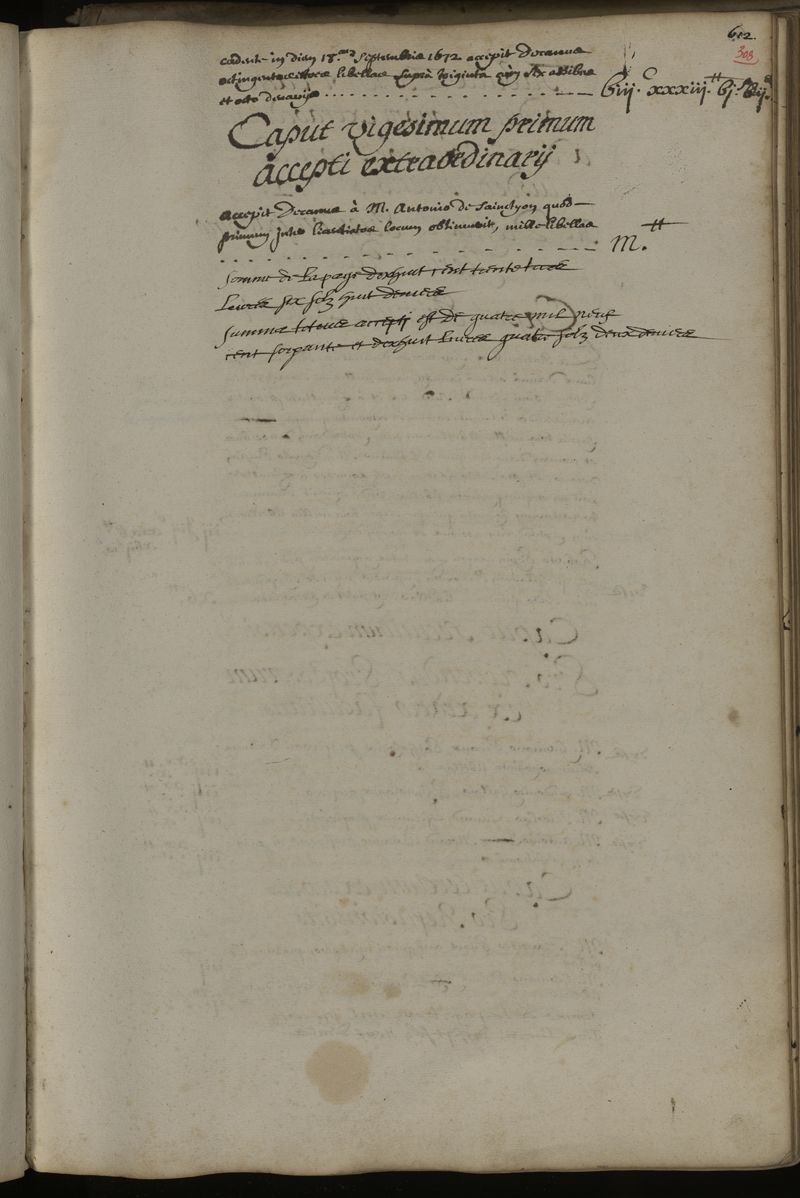 612.
303
cadente in diem 18.am Septembris 1672 accepit Decanus
libellas supra viginti cum sex assibus
et octo denarijs
C xxxiij.tt bj.s
Caput vigesimum primum
accepti extraordinarij
accepit Decanus à M. Antonio de Sainctyon quod
primum inter licentiatos locum obtinuerit, mille libellas
M.tt
somme de la page dixhuit cent trente trois
livres six solz huit deniers
Summa totius accepti est de quatre mil neuf
cent soixante et dixhuit livres quatre solz deux deniers